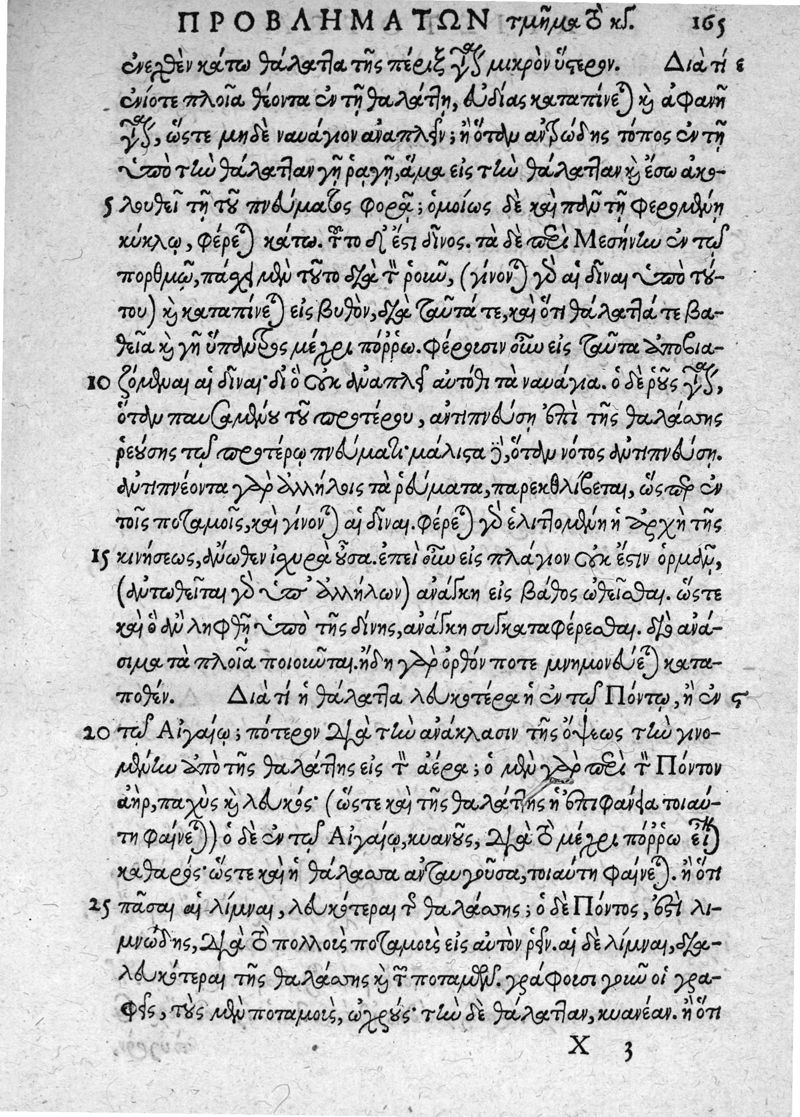 ΠΡΟΒΛΗΜΑΤΩΝ τμῆμα τὸ κγ. 165
ἐνεχθὲν κάτω θάλαττα τῆς πέριξ γίνεται μικρὸν ὕστερον. Διὰ τί ε
ἐνίοτε πλοῖα θέοντα ἐν τῇ θαλάττῃ, εὐδίας καταπίνεται καὶ ἀφανῆ
γίνεται, ὥστε μηδὲ ναυάγιον ἀναπλεῖν; ἢ ὅταν ἀντρώδης τόπος ἐν τῇ
ὑπὸ τὴν θάλατταν γῇ ῥαγῇ, ἅμα εἰς τὴν θάλατταν καὶ ἔσω ἀκο-
5 λουθεῖ τῇ τοῦ πνεύματος φορᾷ; ὁμοίως δὲ καὶ πολὺ τῇ φερομένῃ
κύκλῳ, φέρεται κάτω. τοῦτο δ' ἐστὶ δῖνος. τὰ δὲ περὶ Μεσήνην ἐν τῷ
πορθμῷ, πάσχει μὲν τοῦτο διὰ τὸν ῥοῦν, (γίνονται γὰρ αἱ δῖναι ὑπὸ τού-
του) καὶ καταπίνεται εἰς βυθὸν, διὰ ταῦτά τε, καὶ ὅτι θάλαττά τε βα-
θεῖα καὶ γῆ ὕπαντρος μέχρι πόῤῥω. φέρουσιν οὖν εἰς ταῦτα ἀποβια-
10 ζόμεναι αἱ δῖναι· διὸ οὐκ ἀναπλεῖ αὐτόθι τὰ ναυάγια. ὁ δὲ ῥοῦς γίνεται,
ὅταν παυσαμένου τοῦ προτέρου, ἀντιπνεύσῃ ἐπὶ τῆς θαλάσσης
ῥεύσης τῷ προτέρῳ πνεύματι· μάλιστα δὲ, ὅταν νότος ἀντιπνεύσῃ.
ἀντιπνέοντα γὰρ ἀλλήλοις τὰ ῥεύματα, παρεκθλίβεται, ὥσπερ ἐν
τοῖς ποταμοῖς, καὶ γίνονται αἱ δῖναι. φέρεται γὰρ ἑλιττομένη ἡ ἀρχὴ τῆς
15 κινήσεως, ἄνωθεν ἰσχυρὰ οὖσα. ἐπεὶ οὖν εἰς πλάγιον οὐκ ἔστιν ὁρμᾶν,
(ἀντωθεῖται γὰρ ὑπ' ἀλλήλων) ἀνάγκη εἰς βάθος ὠθεῖσθαι. ὥστε
καὶ ὃ ἂν ληφθῇ ὑπὸ τῆς δίνης, ἀνάγκη συγκαταφέρεσθαι. διὸ ἀνά-
σιμα τὰ πλοῖα ποιοῦνται. ἤδη γὰρ ὀρθόν ποτε μνημονεύεται κατα-
ποθέν. Διὰ τί ἡ θάλαττα λευκοτέρα ἡ ἐν τῷ Πόντῳ, ἢ ἐν ϛ
20 τῷ Αἰγαίῳ; πότερον διὰ τὴν ἀνάκλασιν τῆς ὄψεως τὴν γινο-
μένην ἀπὸ τῆς θαλάττης εἰς τὸν ἀέρα; ὁ μὲν γὰρ περὶ τὸν Πόντον
ἀὴρ, παχὺς καὶ λευκός· (ὥστε καὶ τῆς θαλάττης ἡ ἐπιφάνεια τοιαύ-
τη φαίνεται) ὁ δὲ ἐν τῷ Αἰγαίῳ, κυανοῦς, διὰ τὸ μέχρι πόῤῥω εἶναι
καθαρός· ὥστε καὶ ἡ θάλασσα ἀνταυγοῦσα, τοιαύτη φαίνεται. ἢ ὅτι
25 πᾶσαι αἱ λίμναι, λευκότεραι τῆς θαλάσσης; ὁ δὲ Πόντος, ἐστὶ λι-
μνώδης, διὰ τὸ πολλοὺς ποταμοὺς εἰς αὐτὸν ῥεῖν. αἱ δὲ λίμναι, δια-
λευκότεραι τῆς θαλάσσης καὶ τῶν ποταμῶν. γράφουσι γοῦν οἱ γρα-
φεῖς, τοὺς μὲν ποταμοὺς, ὠχρούς· τὴν δὲ θάλατταν, κυανέαν. ἢ ὅτι
X 3